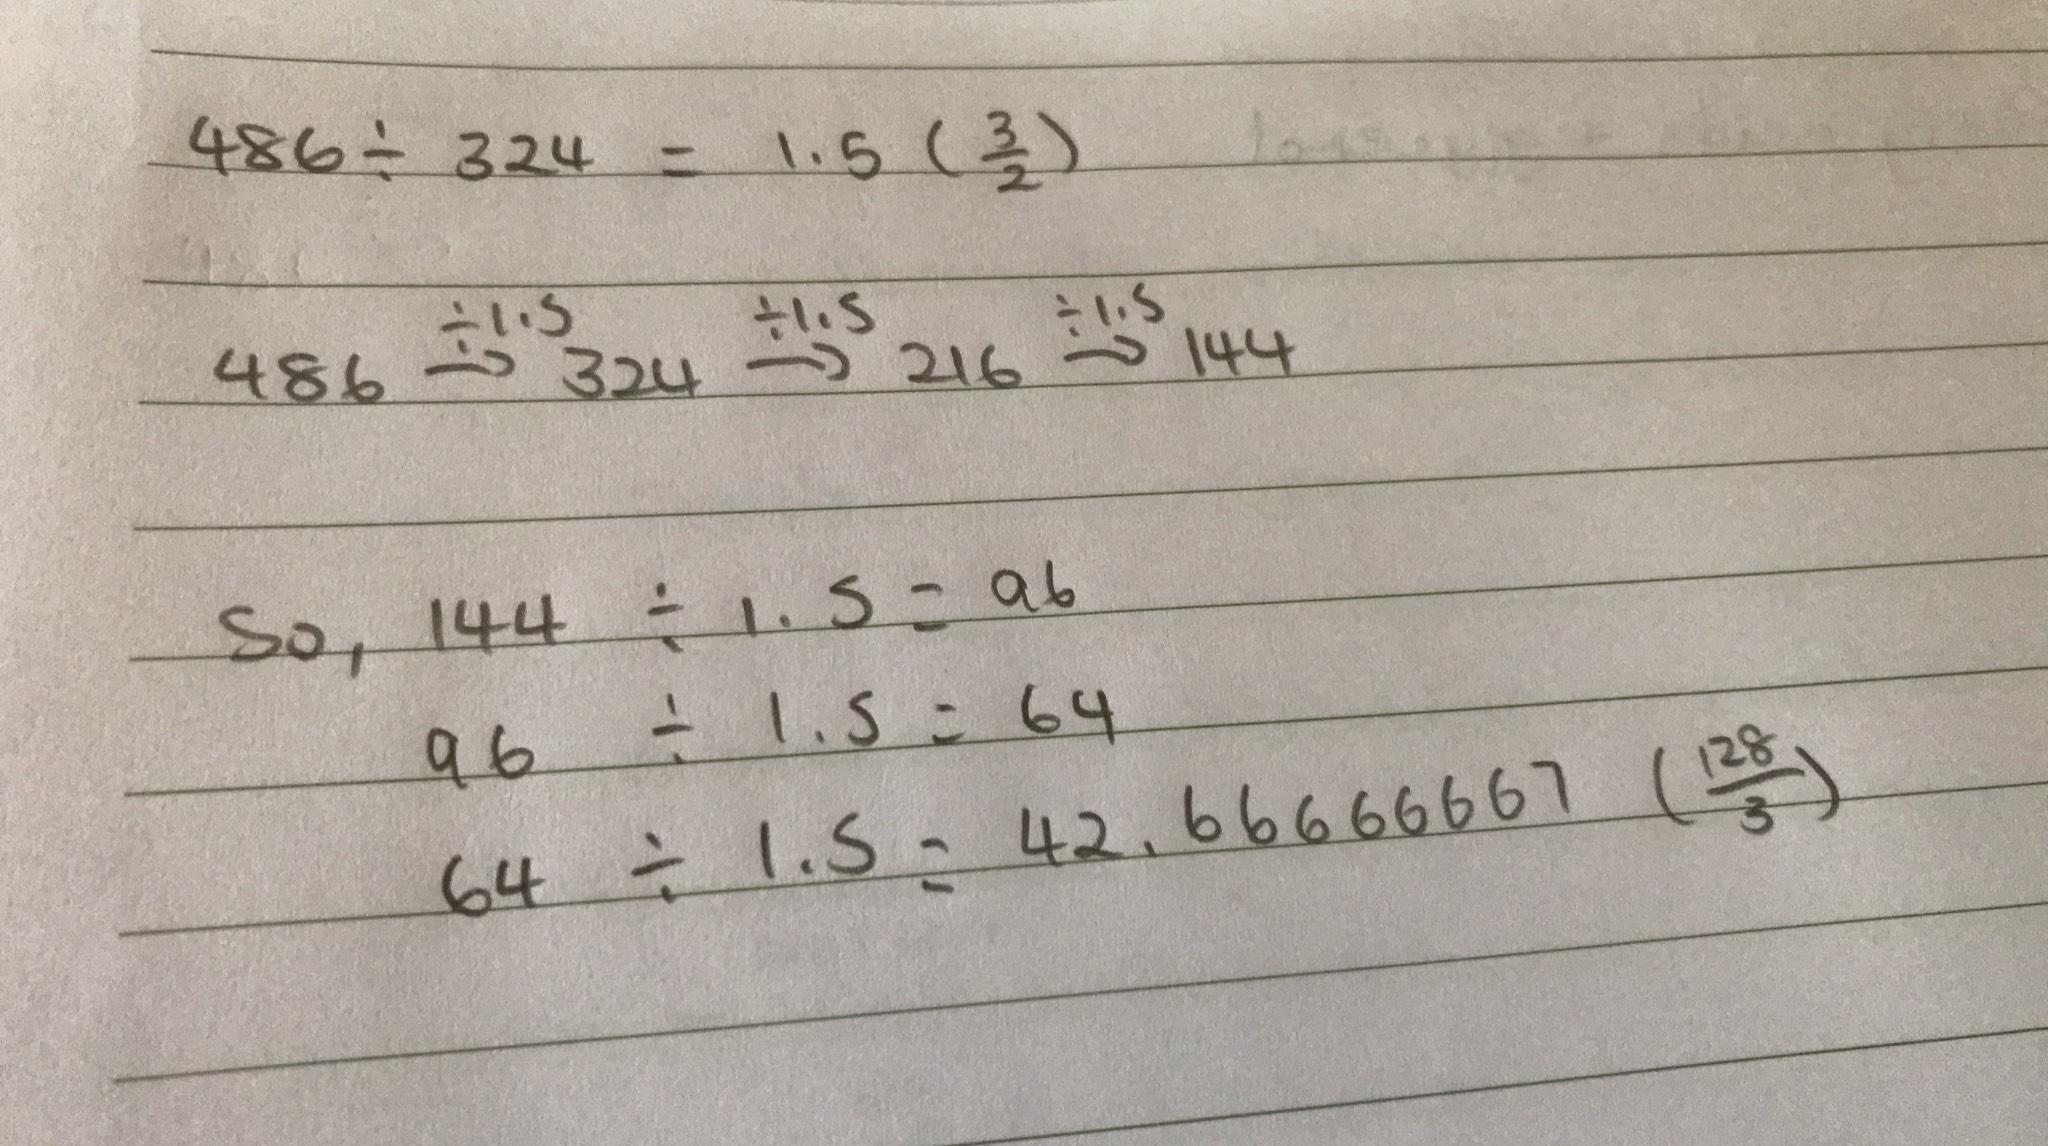 486 ÷ 324 = 1.5 (3/2)
486 ÷1.5→ 324 ÷1.5→ 216 ÷1.5→ 144
So, 144 ÷ 1.5 = 96
96 ÷ 1.5 = 64
64 ÷ 1.5 = 42.66666667 (128/3)